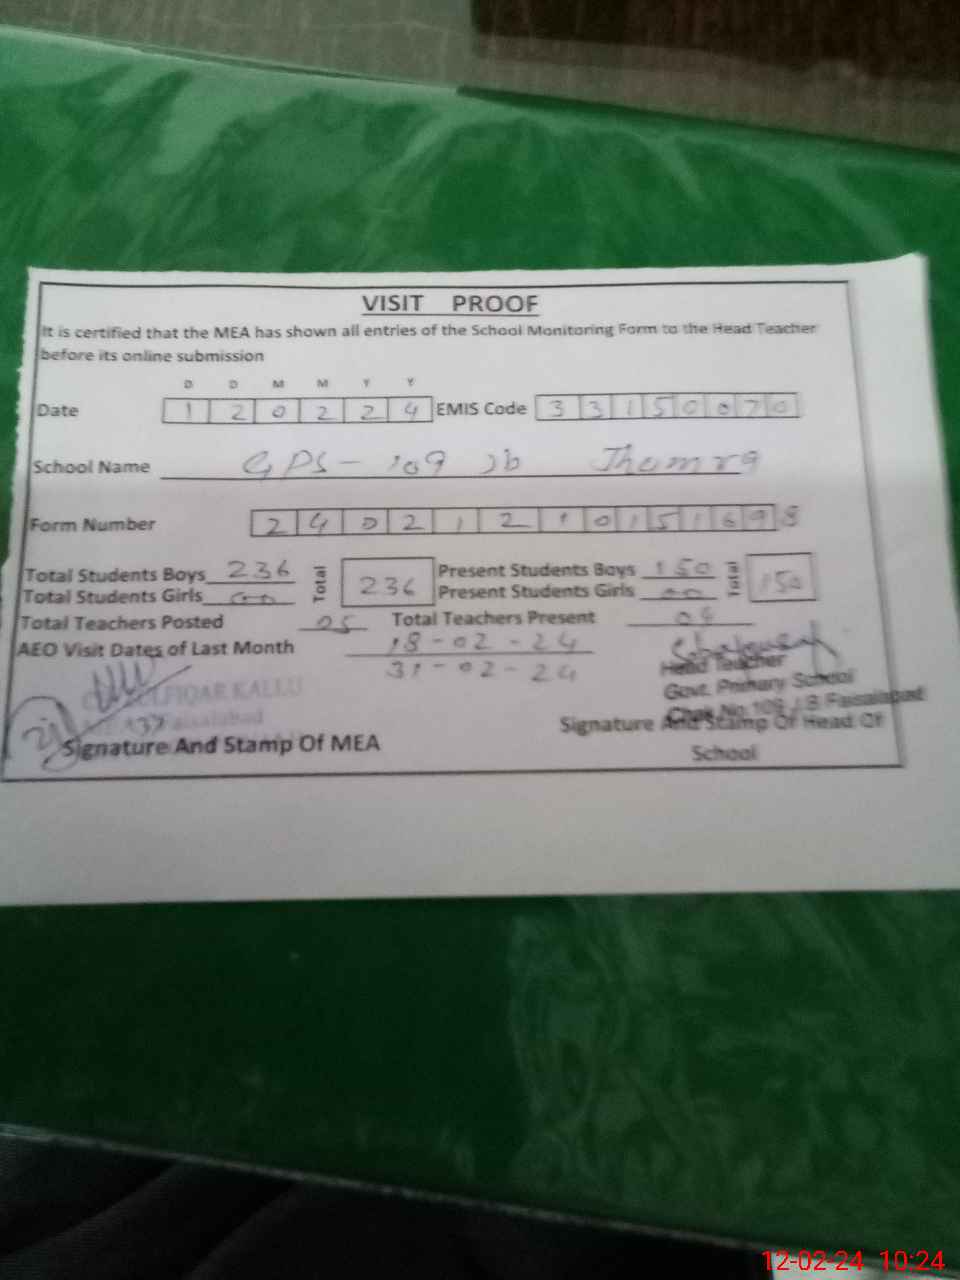 VISIT PROOF
It is certified that the MEA has shown all entries of the School Monitoring Form to the Head Teacher
before its online submission
D D M M Y Y
Date 1 2 0 2 2 4 EMIS Code 3 3 1 5 0 0 7 0
School Name GPS - 109 Jb Jhamra
Form Number 2 4 0 2 1 2 1 0 1 5 1 6 9 8
Total Students Boys 236 Total 236 Present Students Boys 150 Total 150
Total Students Girls 00 Present Students Girls 00
Total Teachers Posted 05 Total Teachers Present 04
AEO Visit Dates of Last Month 18-02-24
31-02-24
Head Teacher
Govt. Primary School
Chak No 109 J B Faisalabad
KALLU
Faisalabad
Signature And Stamp Of MEA
Signature And Stamp Of Head Of
School
12-02-24 10:24